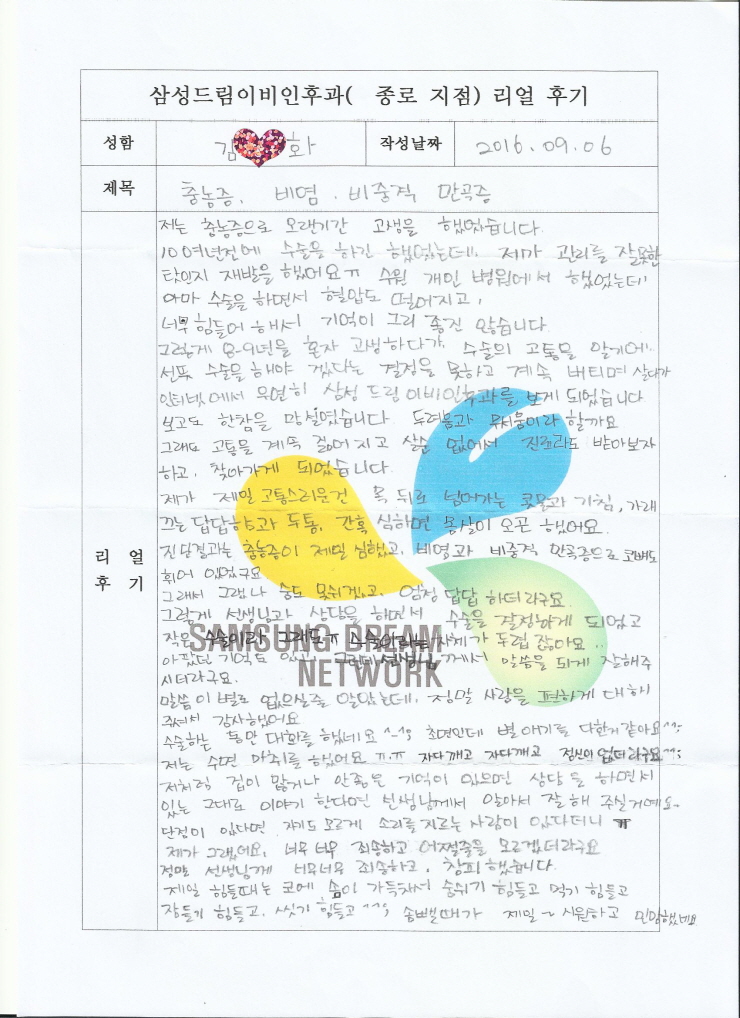 삼성드림이비인후과( 종로 지점) 리얼 후기
성함 김 화 작성날짜 2016.09.06
제목 충농증, 비염. 비중격 만곡증
리 얼 후 기
저는 충농증으로 오랜기간 고생을 했었습니다
10여년전에 수술을 하긴 했었는데, 제가 관리를 잘못한
탓인지 재발을 했어요ㅠ 수원 개인 병원에서 했었는데
아마 수술을 하면서 혈압도 떨어지고,
너무 힘들어 해서 기억이 그리 좋진 않습니다.
그렇게 8-9년을 혼자 고생하다가, 수술의 고통을 알기에
선뜻 수술을 해야 겠다는 결정을 못하고 계속 버티며 살다가
인터넷에서 우연히 삼성 드림 이비인후과를 보게 되었습니다
보고도 한참을 망설였습니다. 두려움과 무서움이라 할까요
그래도 고통을 계속 짊어지고 살순 없어서 진료라도 받아보자
하고, 찾아가게 되었습니다.
제가 제일 고통스러운건 목 뒤로 넘어가는 콧물과 기침, 가래
끼는 답답함과 두통, 간혹 심하면 몸살이 오곤 했어요.
진단결과는 충농증이 제일 심했고, 비염과 비중격 만곡증으로 코뼈도
휘어 있었구요
그래서 그랬나 숨도 못쉬겠고, 엄청 답답 하더라구요.
그렇게 선생님과 상담을 하면서 수술을 결정하게 되었고
작은 수술이라 그래도ㅠ 수술이라는 자체가 두렵 잖아요..
아팠던 기억도 있고, 그런데 선생님께서 말씀을 되게 잘해주
시더라구요.
말씀이 별로 없으실줄 알았는데, 정말 사람을 편하게 대해
주셔서 감사했어요
수술하는 동안 대화를 했네요 ^-^; 초면인데 별 얘기를 다한거같아요^^;
저는 수면 마취를 했어요 ㅠ.ㅠ 자다깨고 자다깨고 정신이 없더라구요^^;
저처럼 겁이 많거나 안좋은 기억이 있으면 상담을 하면서
있는 그대로 이야기 한다면 선생님께서 알아서 잘 해 주실거예요.
단점이 있다면 자기도 모르게 소리를 지르는 사람이 있다더니 ㅠ
제가 그랬네요, 너무 너무 죄송하고 어쩔줄을 모르겠더라구요
정말 선생님께 너무너무 죄송하고, 창피 했습니다.
제일 힘들때는 코에 솜이 가득차서 숨쉬기 힘들고 먹기 힘들고
잠들기 힘들고, 씻기 힘들고 ^^; 솜뺄때가 제일~ 시원하고 민망했네요
SAMSUNG DREAM
NETWORK